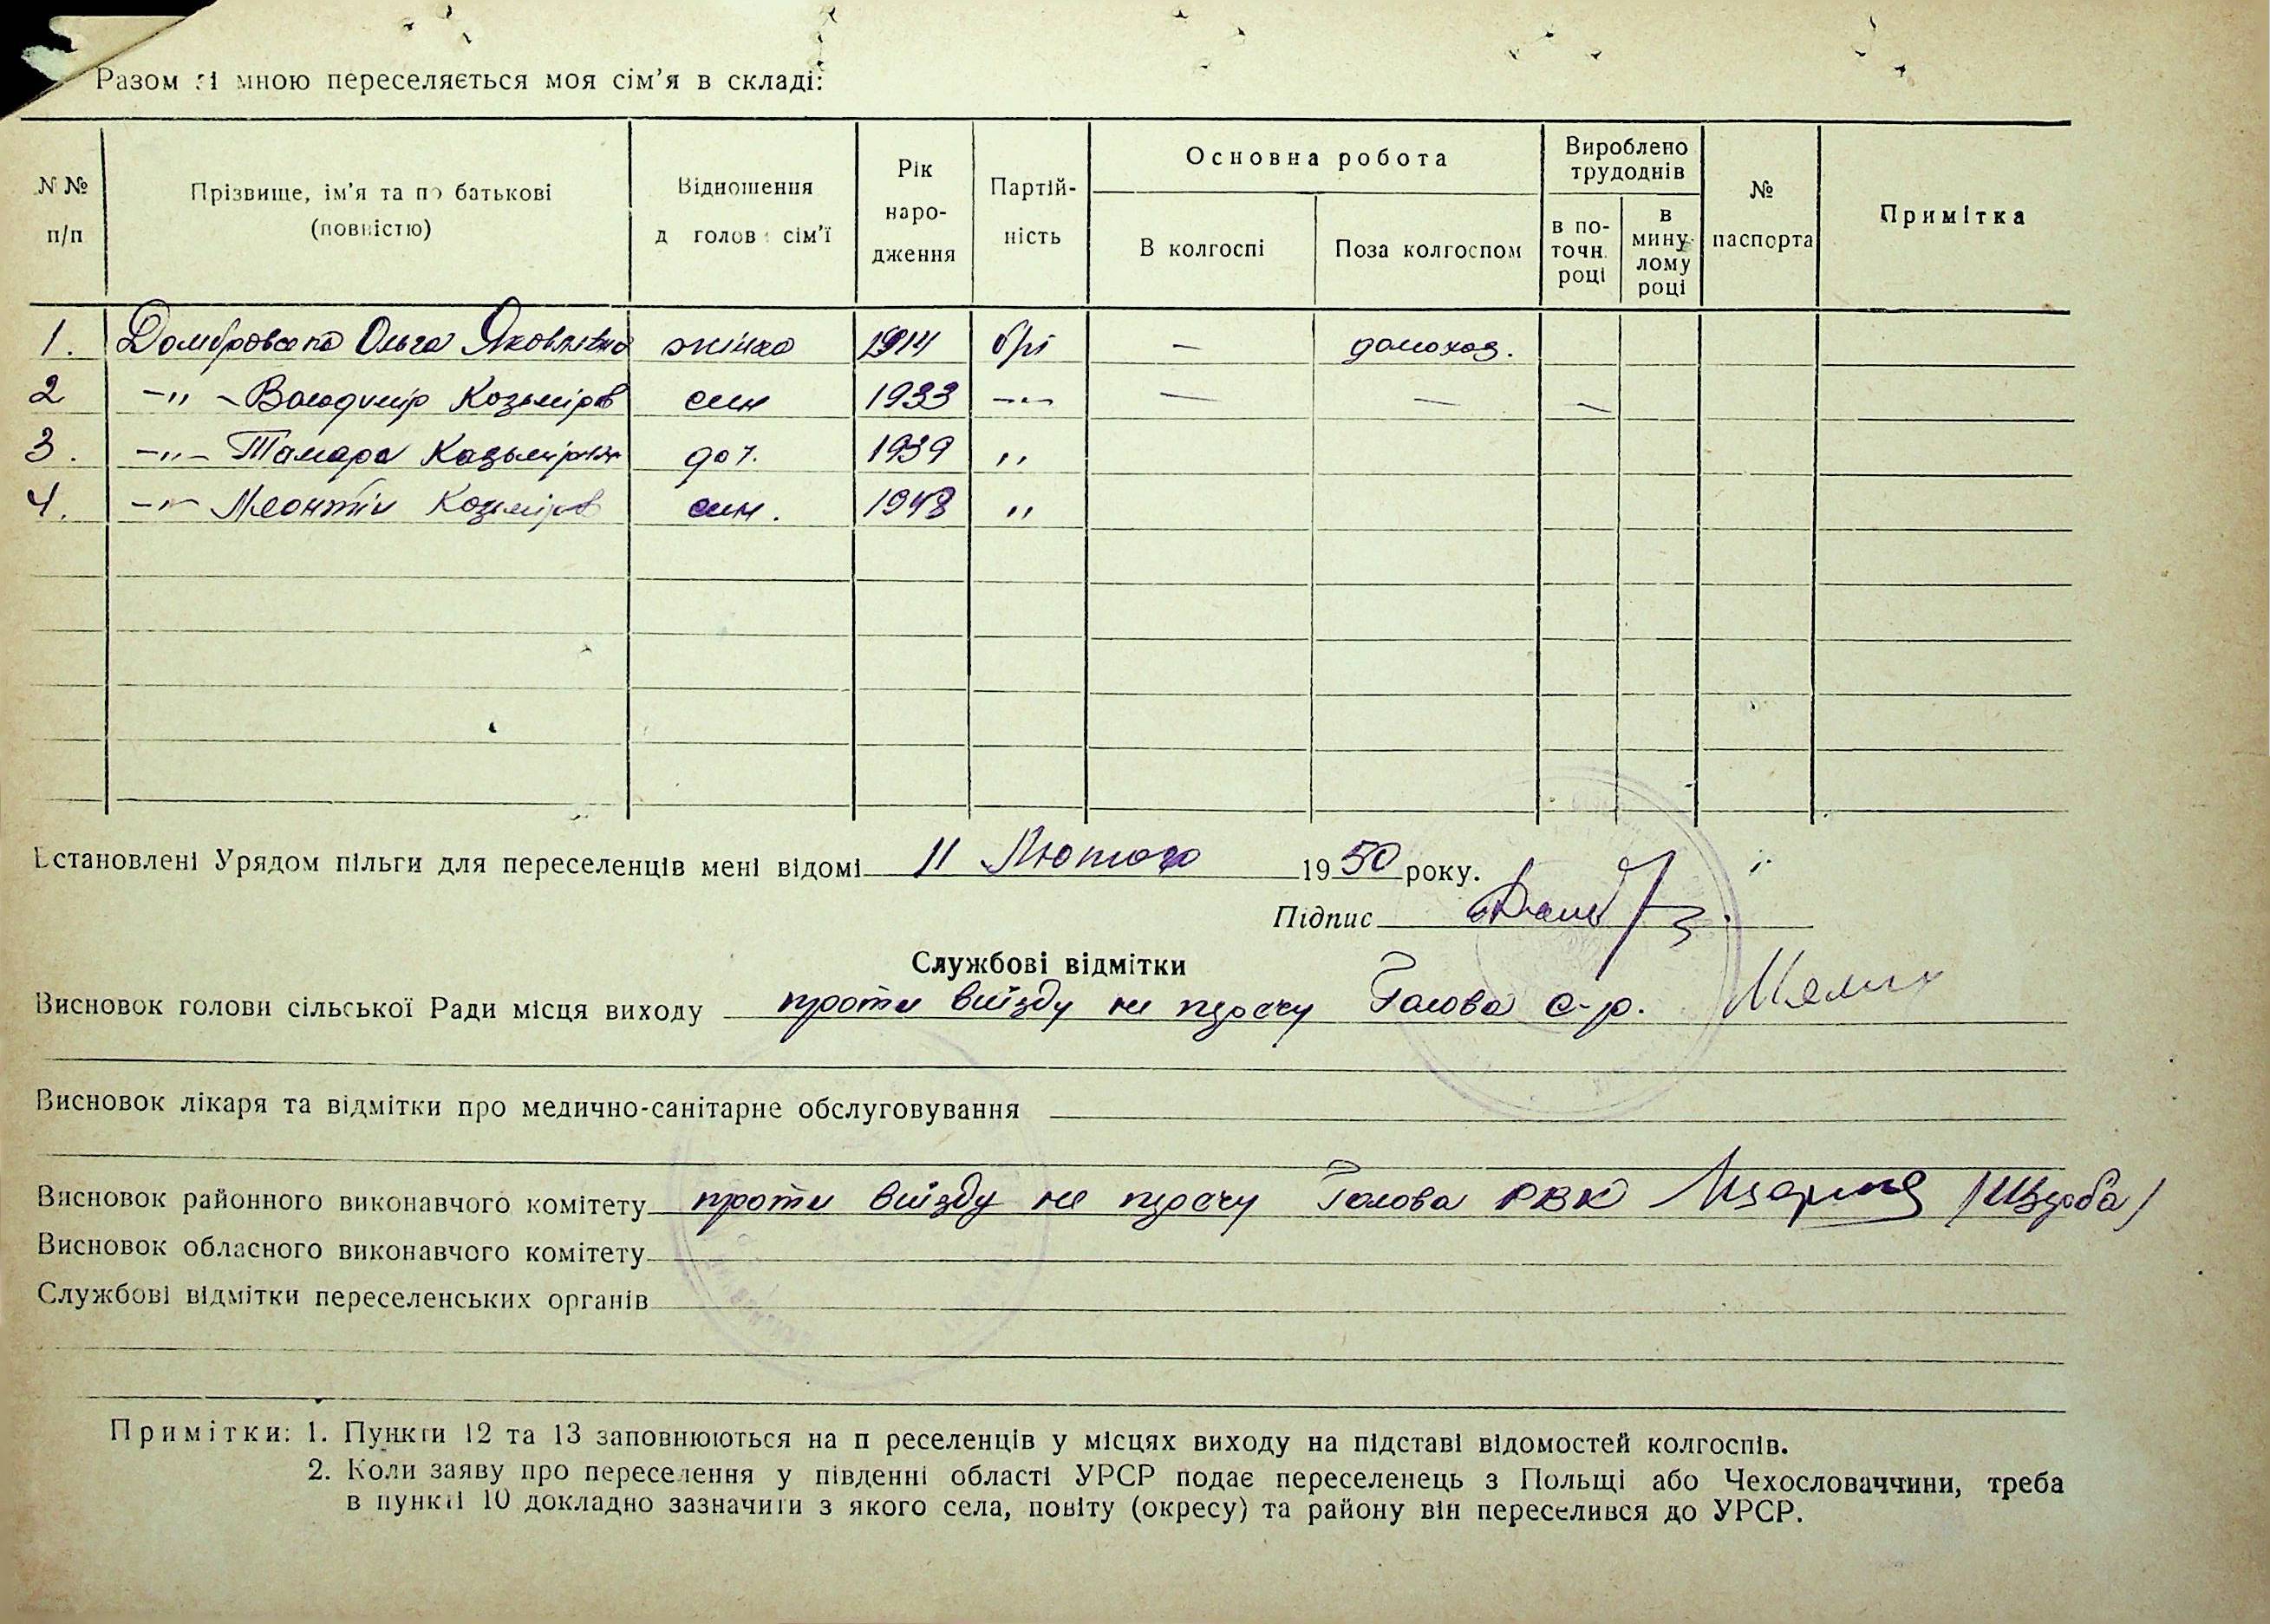 Разом зі мною переселяється моя сім’я в складі:
№ № п/п
Прізвище, ім’я та по батькові (повністю)
Відношення д голов сім’ї
Рік народження
Партій-ність
Основна робота
В колгоспі
Поза колгоспом
Вироблено трудоднів
в по-точн. році
в мину-лому році
№ паспорта
Примітка
1. Домбровська Ольга Яковлевна жінка 1914 б/п — домохоз.
2 —„— Володимір Козьміров син 1933 —„— — — —
3. —„— Тамара Казьмировн доч. 1939 „
4. —„— Леонтій Козьміров син. 1948 „
Встановлені Урядом пільги для переселенців мені відомі 11 Лютого 1950 року.
Підпис
Службові відмітки
Висновок голови сільської Ради місця виходу проти виїзду не прочу Голова с-р.
Висновок лікаря та відмітки про медично-санітарне обслуговування
Висновок районного виконавчого комітету проти виїзду не прочу Голова РВК /Щерба/
Висновок обласного виконавчого комітету
Службові відмітки переселенських органів
Примітки: 1. Пункти 12 та 13 заповнюються на п реселенців у місцях виходу на підставі відомостей колгоспів.
2. Коли заяву про переселення у південні області УРСР подає переселенець з Польщі або Чехословаччини, треба
в пункті 10 докладно зазначити з якого села, повіту (окресу) та району він переселився до УРСР.